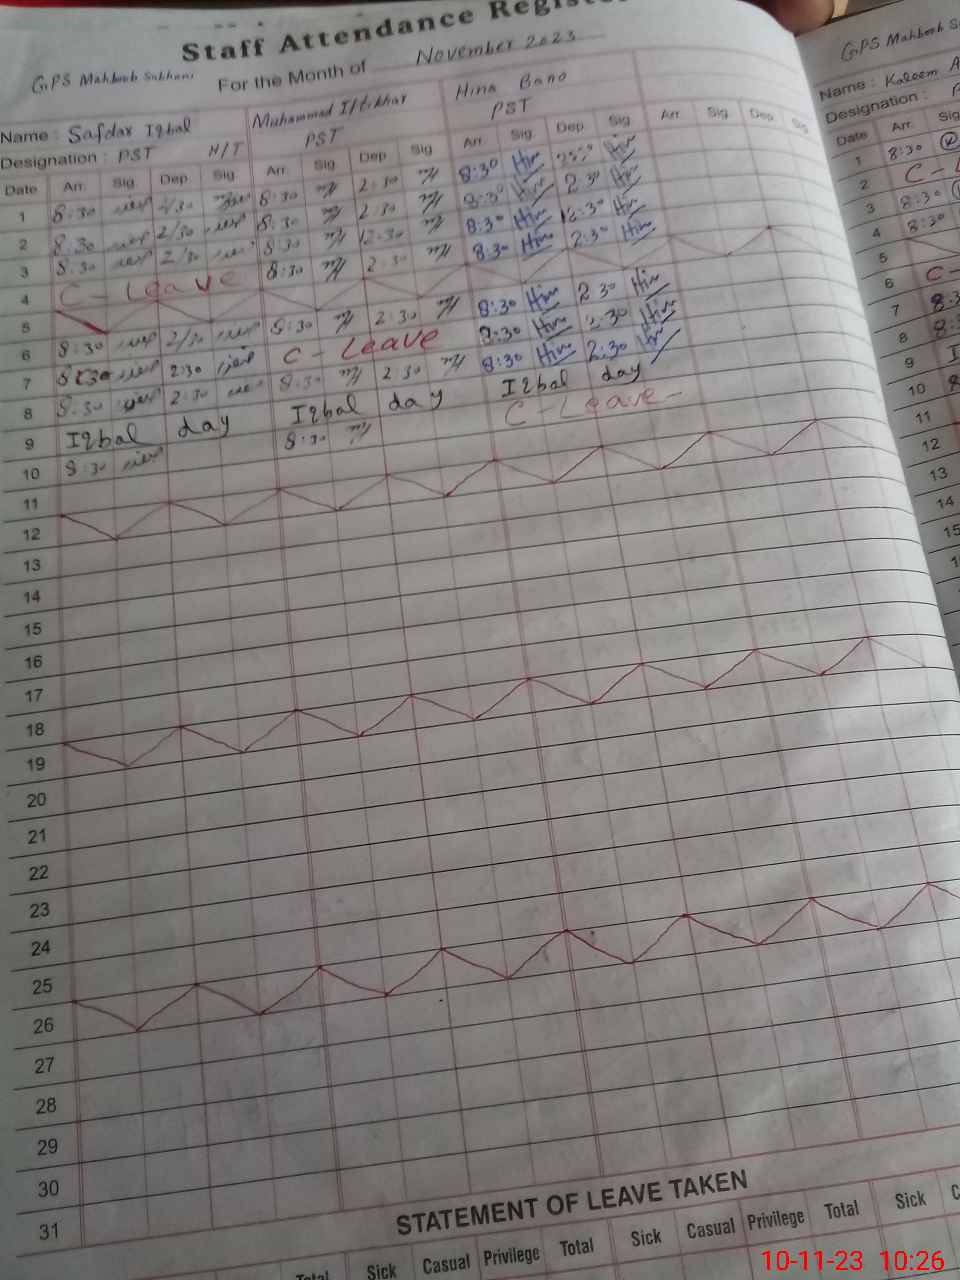 Staff Attendance Register
GPS Mahboob Subhani For the Month of November 2023
Name : Safdar Iqbal Muhammad Iftikhar Hina Bano
Designation : PST H/T PST PST
Date Arr. Sig. Dep Sig Arr. Sig. Dep Sig Arr. Sig. Dep. Sig Arr. Sig. Dep. Sig
1 8:30 2/30 8:30 2:30 8:30 Hina Hina
2 8:30 2/30 8:30 2:30 8:30 Hina 2:30 Hina
3 8:30 8:30 12:30 8:30 Hina 12:30 Hina
4 C - Leave 8:30 2:30 8:30 Hina 2:30 Hina
5
6 8:30 2/30 8:30 2:30 8:30 Hina 2:30 Hina
7 8:30 2:30 C - Leave 8:30 Hina 2:30 Hina
8 8:30 2:30 8:30 2:30 8:30 Hina 2:30 Hina
9 Iqbal day Iqbal day Iqbal day
10 8:30 8:30 C - Leave -
11
12
13
14
15
16
17
18
19
20
21
22
23
24
25
26
27
28
29
30
31
STATEMENT OF LEAVE TAKEN
Total Sick Casual Privilege Total Sick Casual Privilege Total Sick
GPS Mahboob
Name : Kaleem
Designation :
Date Arr. Sig
1 8:30
2 C -
3 8:30
4 8:30
5
6 C -
7 8:3
8 8:3
9 I
10 8
11
12
13
14
15
10-11-23 10:26